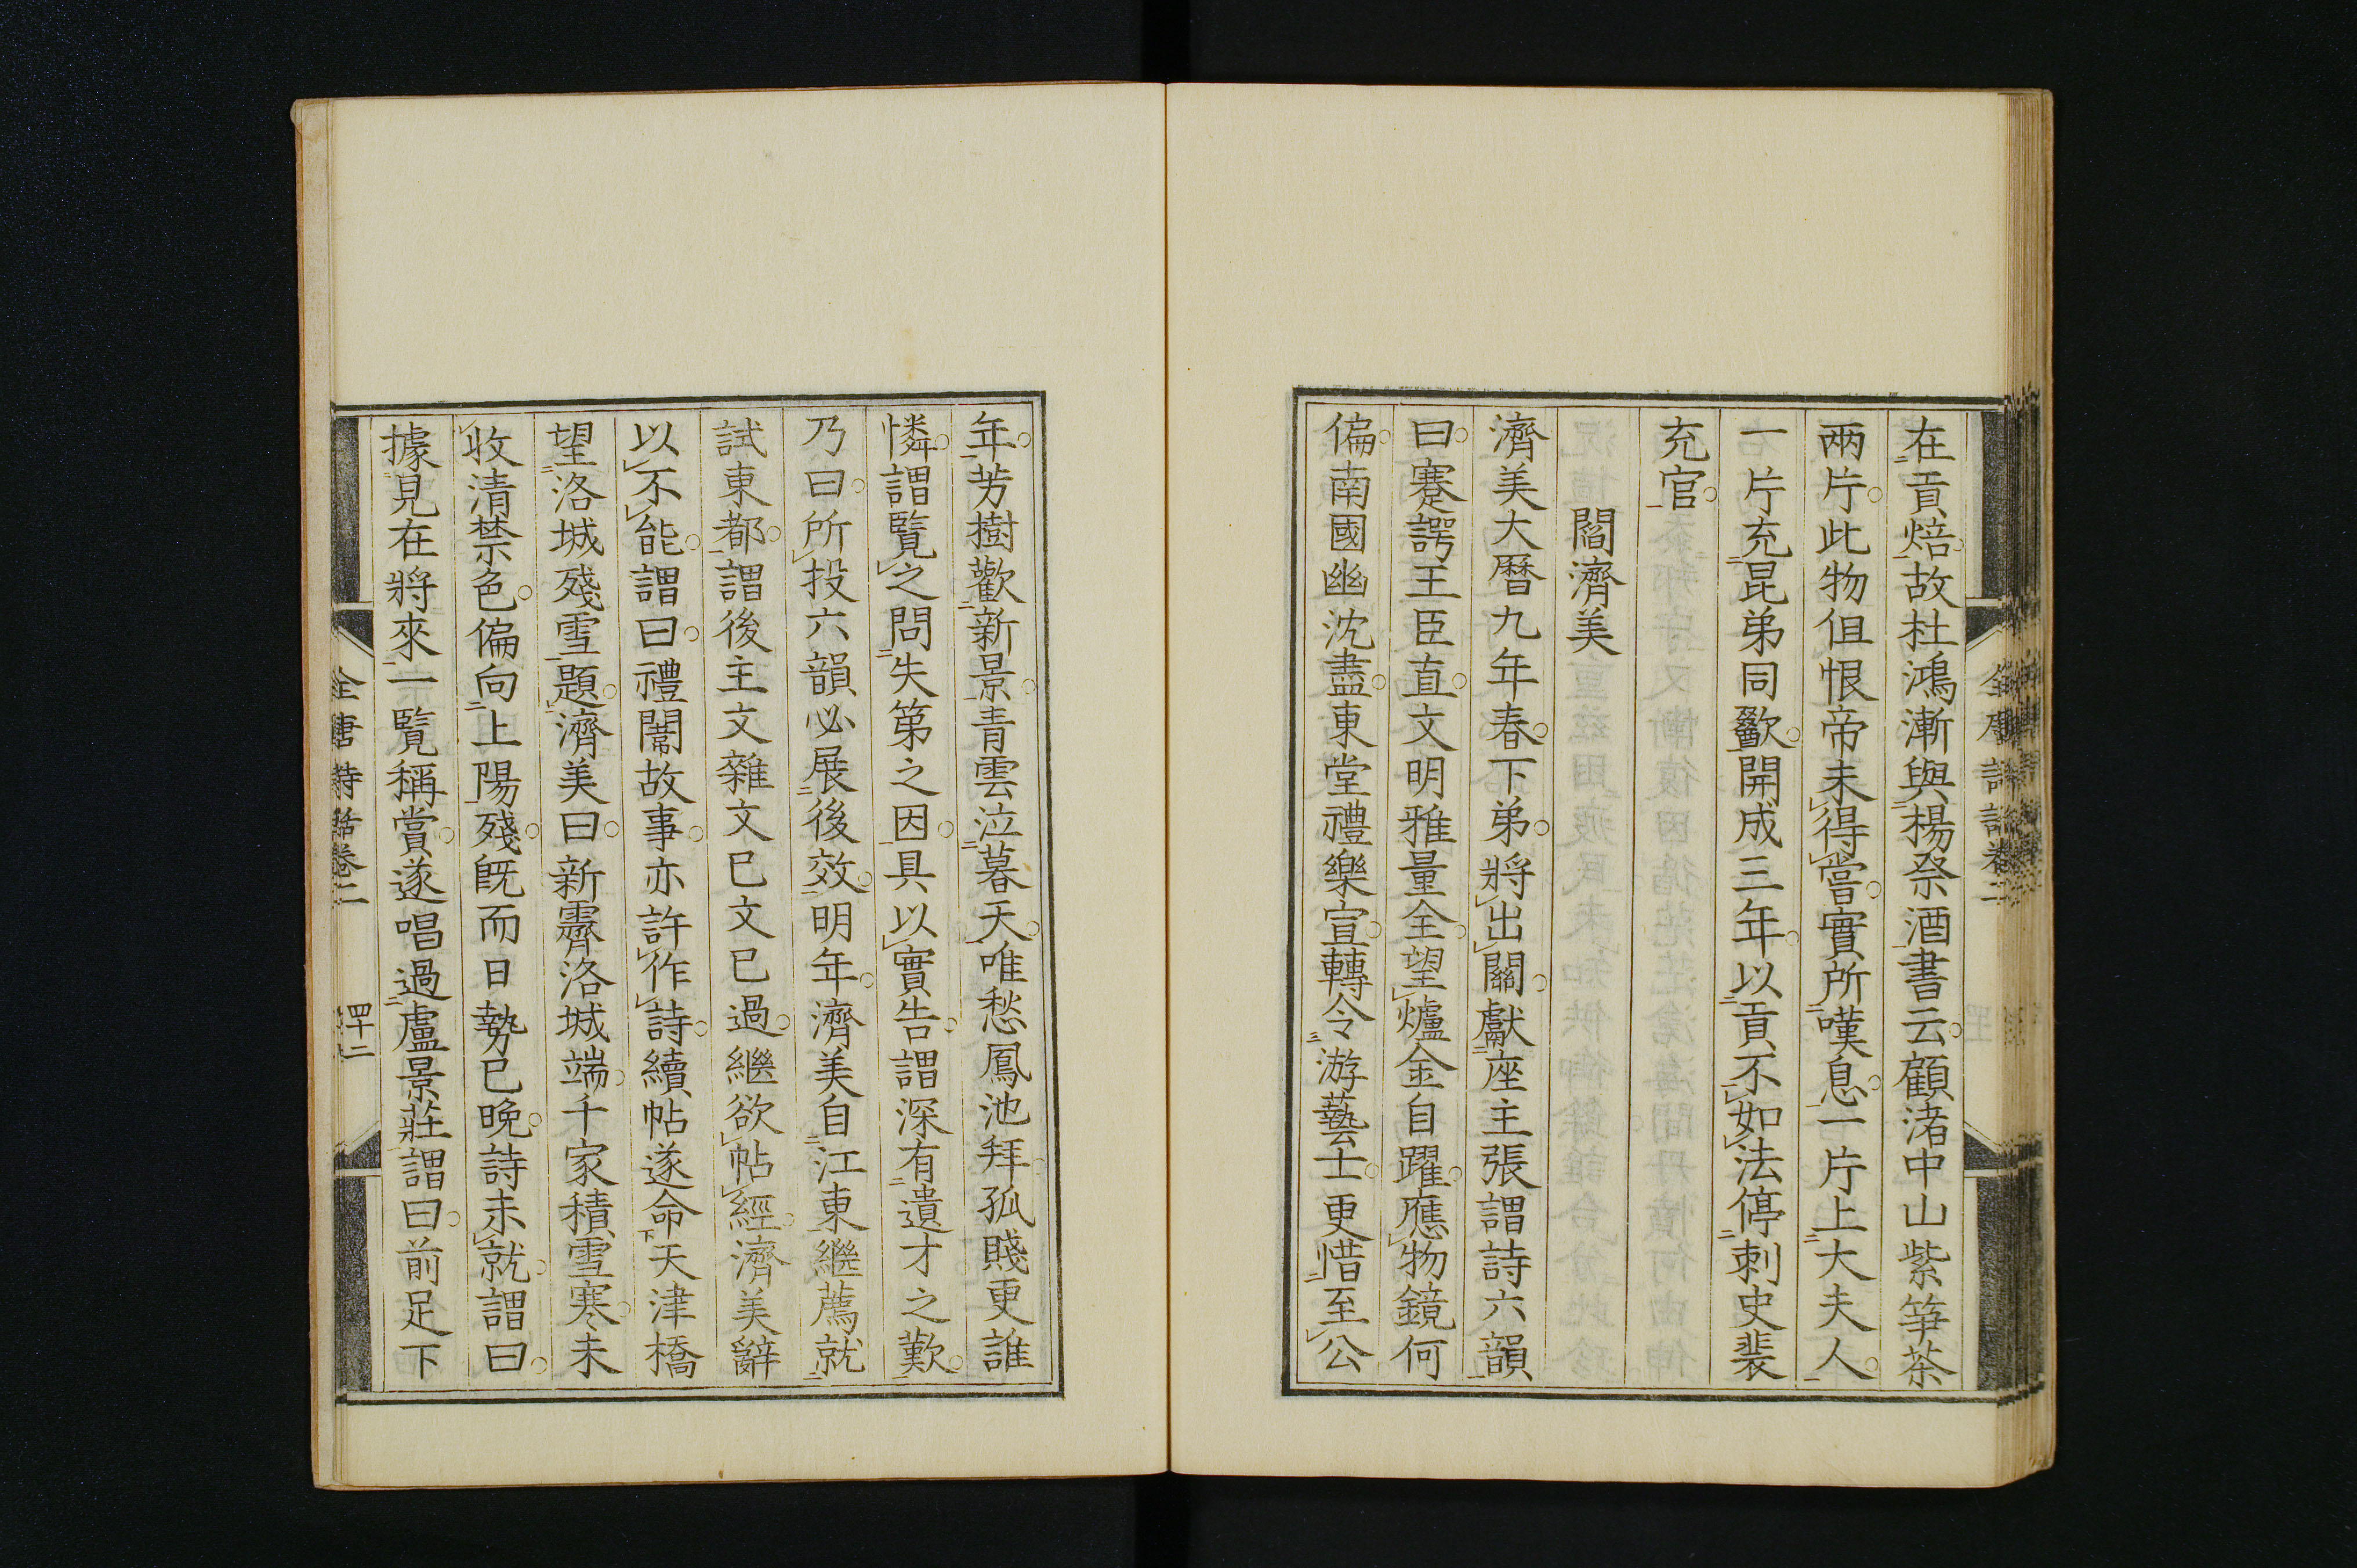 在貢焙故杜鴻漸與楊祭酒書云顧渚中山紫筍茶
兩片此物但恨帝未得嘗實所嘆息一片上大夫人
一片充昆弟同歠開成三年以貢不如法停刺史裴
充官
閻濟美
濟美大曆九年春下弟將出關獻座主張謂詩六韻
曰蹇諤王臣直文明雅量全望爐金自躍應物鏡何
偏南國幽沈盡東堂禮樂宣轉令游藝士更惜至公
年芳樹歡新景青雲泣暮天唯愁鳳池拜孤賤更誰
憐謂覽之問失第之因具以實告謂深有遺才之歎
乃曰所投六韻必展後效明年濟美自江東繼薦就
試東都謂後主文雜文已文已過繼欲帖經濟美辭
以不能謂曰禮闈故事亦許作詩續帖遂命天津橋
望洛城殘雪題濟美曰新霽洛城端千家積雪寒未
收清禁色偏向上陽殘既而日勢已晚詩未就謂曰
據見在將來一覽稱賞遂唱過盧景莊謂曰前足下
全唐詩話卷二
四十二